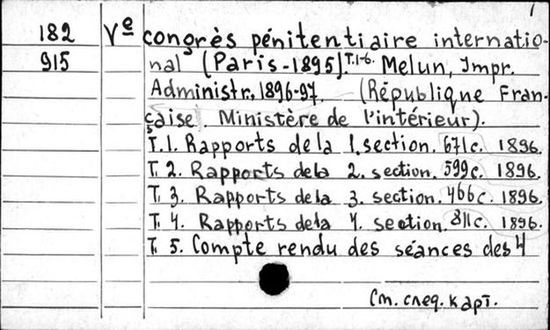 1
182 Vᵉ congrès pénitentiaire internatio-
915 nal (Paris-1895). T.1-6. Melun, Impr.
Administr., 1896-97. (République Fran-
çaise. Ministère de l'intérieur).
T. 1. Rapports de la 1. section. 671c. 1896.
T. 2. Rapports de la 2. section. 599c. 1896.
T. 3. Rapports de la 3. section. 466c. 1896.
T. 4. Rapports de la 4. section. 811c. 1896.
T. 5. Compte rendu des séances des 4
См. след. карт.